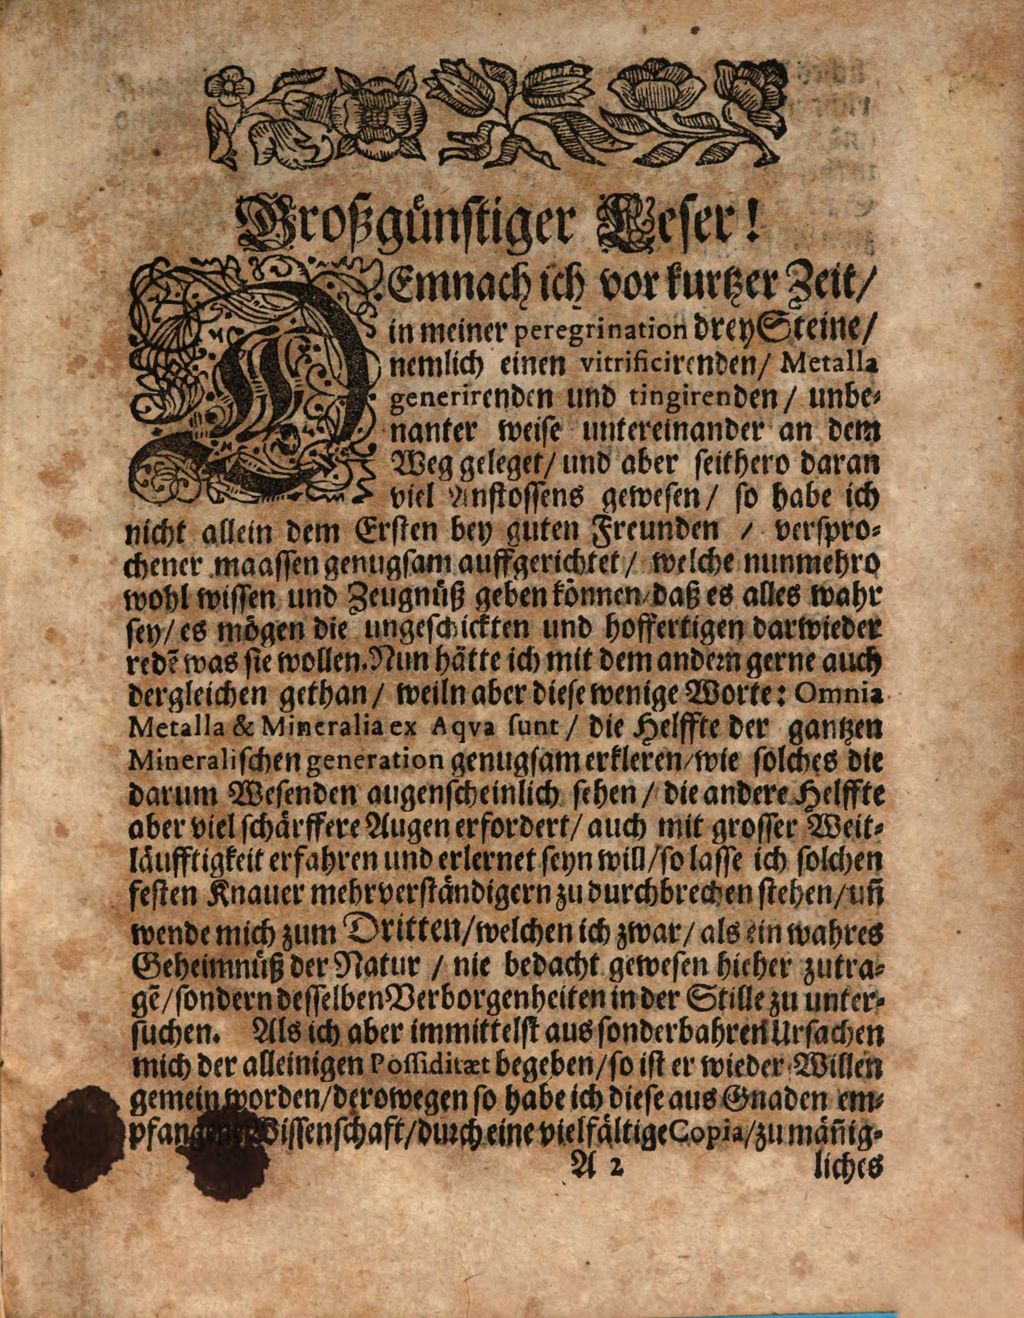 Großgünstiger Leser!
DEmnach ich vor kurtzer Zeit/
in meiner peregrination drey Steine/
nemlich einen vitrificirenden/ Metalla
generirenden und tingirenden / unbe-
nanter weise untereinander an dem
Weg geleget/ und aber seithero daran
viel Anstossens gewesen/ so habe ich
nicht allein dem Ersten bey guten Freunden / verspro-
chener maassen genugsam auffgerichtet/ welche nunmehro
wohl wissen und Zeugnüß geben können/daß es alles wahr
sey/ es mögen die ungeschickten und hoffertigen darwieder
redẽ was sie wollen. Nun hätte ich mit dem andern gerne auch
dergleichen gethan/ weiln aber diese wenige Worte: Omnia
Metalla & Mineralia ex Aqva sunt/ die Helffte der gantzen
Mineralischen generation genugsam erkleren/wie solches die
darum Wesenden augenscheinlich sehen/ die andere Helffte
aber viel schärffere Augen erfordert/ auch mit grosser Weit-
läufftigkeit erfahren und erlernet seyn will/so lasse ich solchen
festen Knauer mehrverständigern zu durchbrechen stehen/uñ
wende mich zum Dritten/welchen ich zwar/ als ein wahres
Geheimnüß der Natur / nie bedacht gewesen hieher zutra-
gẽ/sondern desselben Verborgenheiten in der Stille zu unter-
suchen. Als ich aber immittelst aus sonderbahren Ursachen
mich der alleinigen Possiditæt begeben/so ist er wieder Willen
gemein worden/derowegen so habe ich diese aus Gnaden em-
pfangene Wissenschaft/durch eine vielfältige Copia/zu mäñig-
A 2 liches